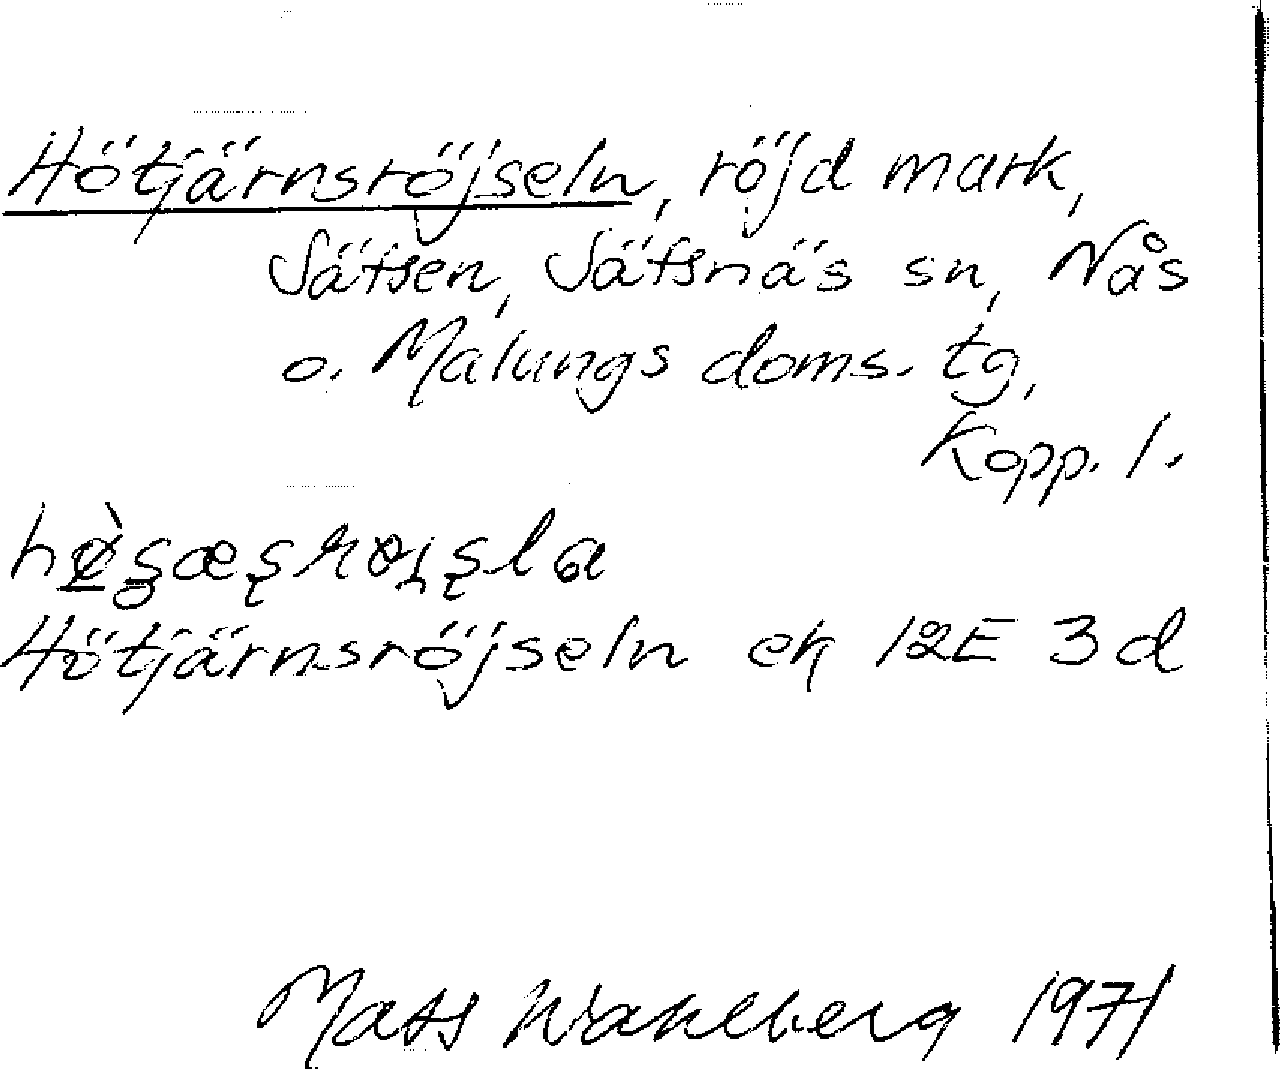 Hötjärnsröjseln, röjd mark,
Sätsen, Sätsnäs sn, Nås
o. Malungs doms. tg,
Kopp. l.
Hötjärnsröjseln ek 12E 3d
Mats Wahlberg 1971